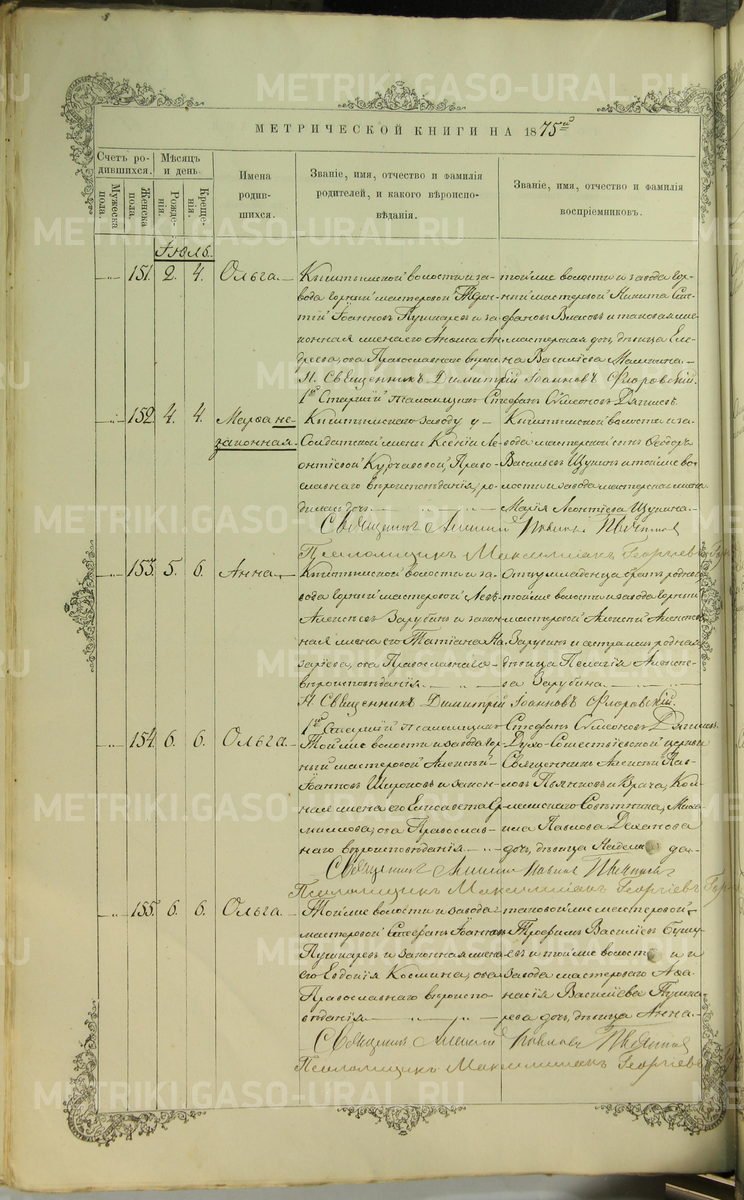 METRIKI.GASO-URAL.RU
МЕТРИЧЕСКОЙ КНИГИ НА 1875й
Счетъ родившихся.
Мужеска пола.
Женска пола.
Мѣсяцъ и день.
Рожденія.
Крещенія.
Имена родившихся.
Званіе, имя, отчество и фамилія родителей, и какого вѣроисповѣданія.
Званіе, имя, отчество и фамилія воспріемниковъ.
Іюль.
151. 2. 4. Ольга.
Кыштымской волости и завода горный мастеровой
Іоанновъ Пушкаревъ и законная жена его Анфиса Андреева, оба Православнаго
той же волости и завода горный мастеровой Никита
Власовъ и
мастерская дочь, дѣвица
Василіева
Н. Священникъ Димитрій Іоанновъ Флоровскій.
1й Старшій Псаломщикъ Стефанъ Сумеоновъ Дягилевъ.
152. 4. 4. Марфа незаконная.
Кыштымскаго заводу у
Солдатской жены Ксеніи Леонтіевой Православнаго вѣроисповѣданія, родилась дочь.
Кыштымской волости и завода мастерской сынъ Ѳеодоръ
Васильевъ Щукинъ и той же волости и завода мастерская жена
Марія Леонтіева Щукина.
Священникъ Алексій Павловъ
Псаломщикъ Максимиліанъ Георгіевъ
153. 5. 6. Анна
Кыштымской волости и завода горный мастеровой Левъ
Алексіевъ Зарубинъ и законная жена его Татіана Назаріева, оба Православнаго
вѣроисповѣданія
Отцу младенца братъ родной
той же волости и завода горный
мастеровой Алексій
Зарубинъ и сестра имъ родная
дѣвица Пелагія Алексіева Зарубина.
Н. Священникъ Димитрій Іоанновъ Флоровскій.
1й Старшій Псаломщикъ Стефанъ Сумеоновъ Дягилевъ.
154. 6. 6. Ольга.
Той же волости и завода горный мастеровой Алексій
Іоанновъ Широковъ и законная жена его Елисавета
оба Православнаго вѣроисповѣданія
Духо-Сошествіевской церкви
Священникъ Алексій Павловъ и Врача, Коллежскаго Совѣтника,
Павлова
дочь, дѣвица
Священникъ Алексій Павловъ
Псаломщикъ Максимиліанъ Георгіевъ
155. 6. 6. Ольга.
Той же волости и завода
мастеровой Стефанъ Іоанновъ
Пушкаревъ и законная жена
его Евдокія Космина, оба
Православнаго вѣроисповѣданія
таковой же мастеровой
Трофимъ Василіевъ
и той же волости и
завода мастероваго Аѳанасія Василіева Пушкарева дочь, дѣвица Анна.
Священникъ Алексій Павловъ
Псаломщикъ Максимиліанъ Георгіевъ